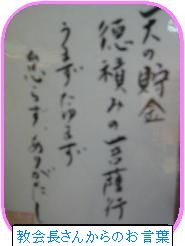 天の貯金
徳積みの菩薩行
うまずたゆまず
怠らず、ありがたし
教会長さんからのお言葉